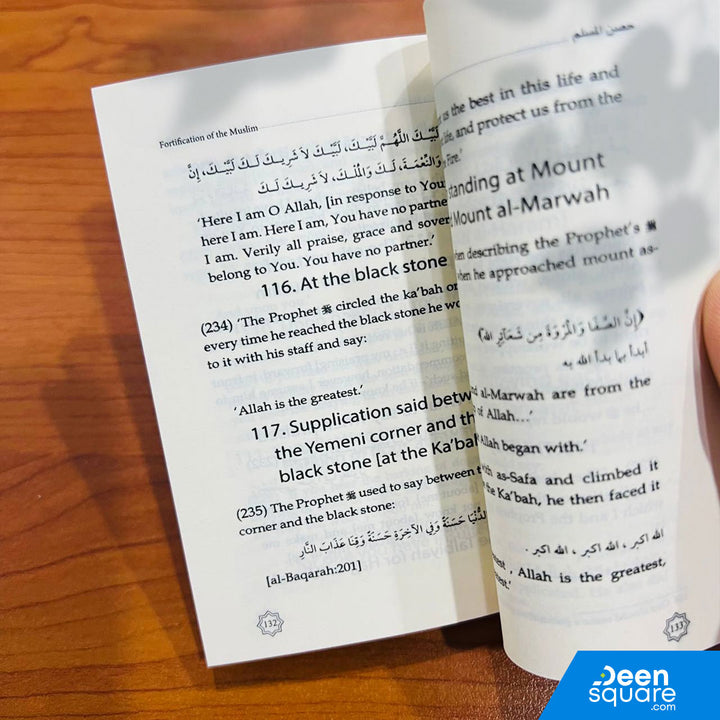 Fortification of the Muslim
لَبَّيْكَ اللَّهُمَّ لَبَّيْكَ، لَبَّيْكَ لاَ شَرِيكَ لَكَ لَبَّيْكَ، إِنَّ
وَالنِّعْمَةَ، لَكَ وَالْمُلْكَ، لاَ شَرِيكَ لَكَ
‘Here I am O Allah, [in response to You
here I am. Here I am, You have no partne
I am. Verily all praise, grace and sover
belong to You. You have no partner.’
116. At the black stone
(234) ‘The Prophet ﷺ circled the ka’bah on
every time he reached the black stone he wo
to it with his staff and say:
‘Allah is the greatest.’
117. Supplication said betw
the Yemeni corner and th
black stone [at the Ka’bah
(235) The Prophet ﷺ used to say between t
corner and the black stone:
الدُّنْيَا حَسَنَةً وَفِي الآخِرَةِ حَسَنَةً وَقِنَا عَذَابَ النَّارِ
[al-Baqarah:201]
132
حصن المسلم
us the best in this life and
life, and protect us from the
Fire.’
standing at Mount
Mount al-Marwah
when describing the Prophet’s ﷺ
when he approached mount as-
﴿إِنَّ الصَّفَا وَالْمَرْوَةَ مِن شَعَآئِرِ اللهِ﴾
أبدأ بما بدأ الله به
al-Marwah are from the
of Allah…’
Allah began with.’
with as-Safa and climbed it
the Ka’bah, he then faced it
الله أكبر ، الله أكبر ، الله أكبر .
, Allah is the greatest,
133
Deen
square
.com